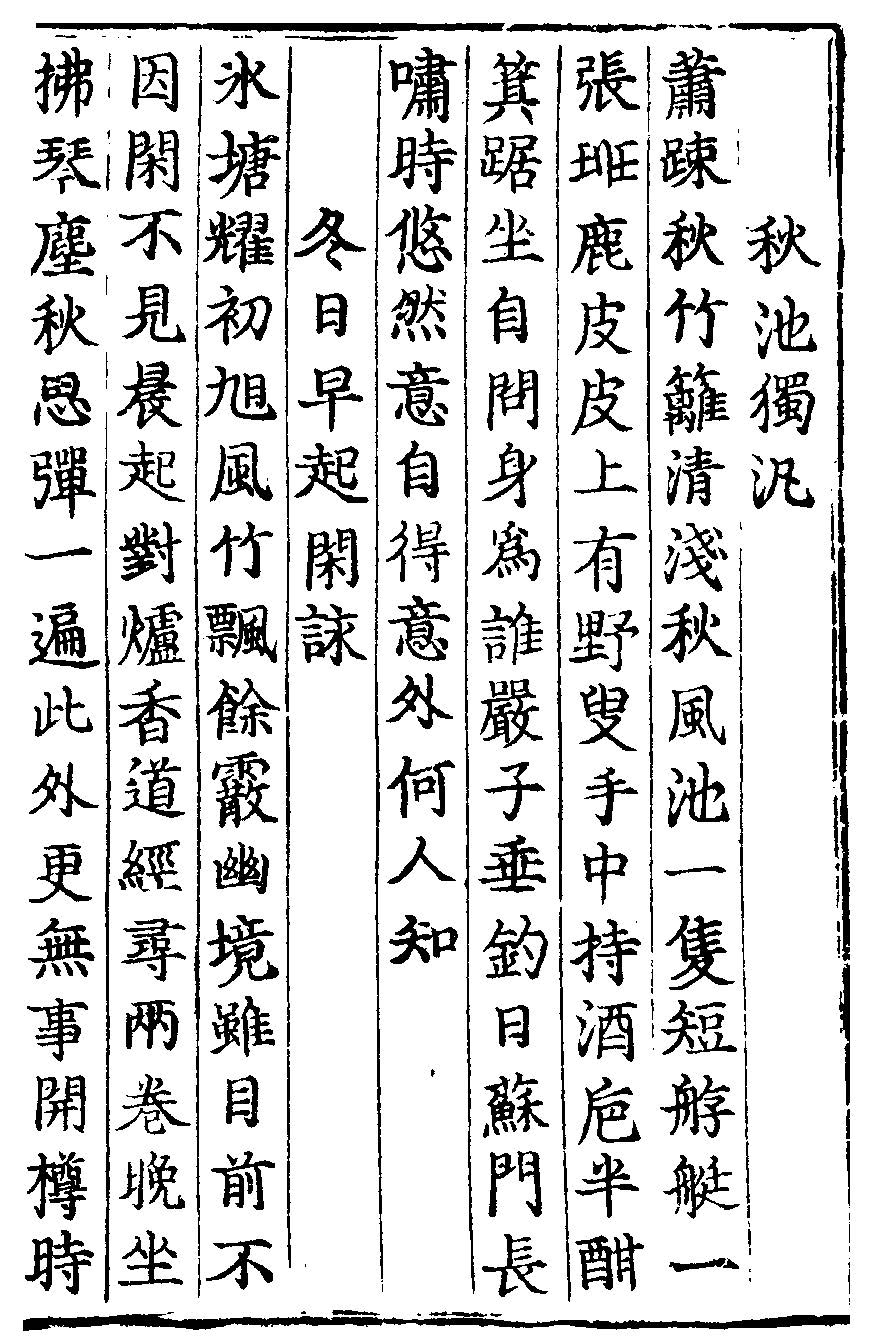 秋池獨汎
蕭踈秋竹籬清淺秋風池一隻短艀艇一
張班鹿皮皮上有野叟手中持酒巵半酣
箕踞坐自問身爲誰嚴子垂釣日蘇門長
嘯時悠然意自得意外何人知
冬日早起閑詠
氷塘耀初旭風竹飄餘霰幽境雖目前不
因閑不見晨起對爐香道經尋兩卷晚坐
拂琴塵秋思彈一遍此外更無事開樽時